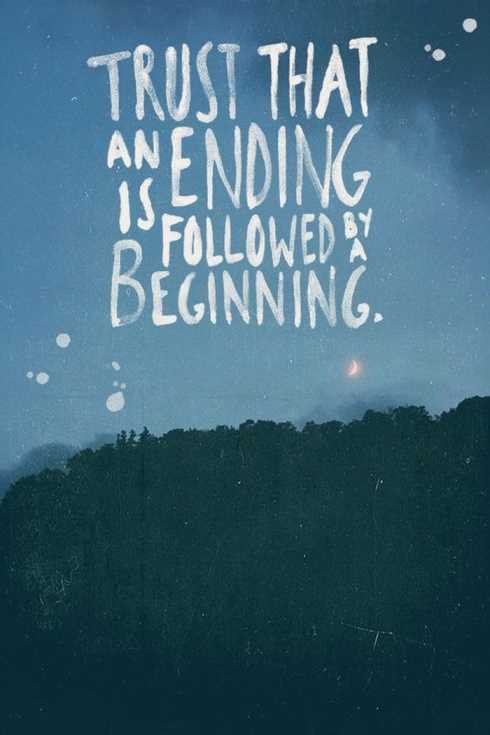 TRUST THAT
AN ENDING
IS FOLLOWED BY A
BEGINNING.